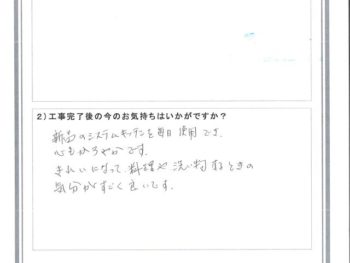 2)工事完了後の今のお気持ちはいかがですか?
新品のシステムキッチンを毎日使用でき、
心もかろやかです。
きれいになって、料理や洗い物するときの
気分がすごく良いです。